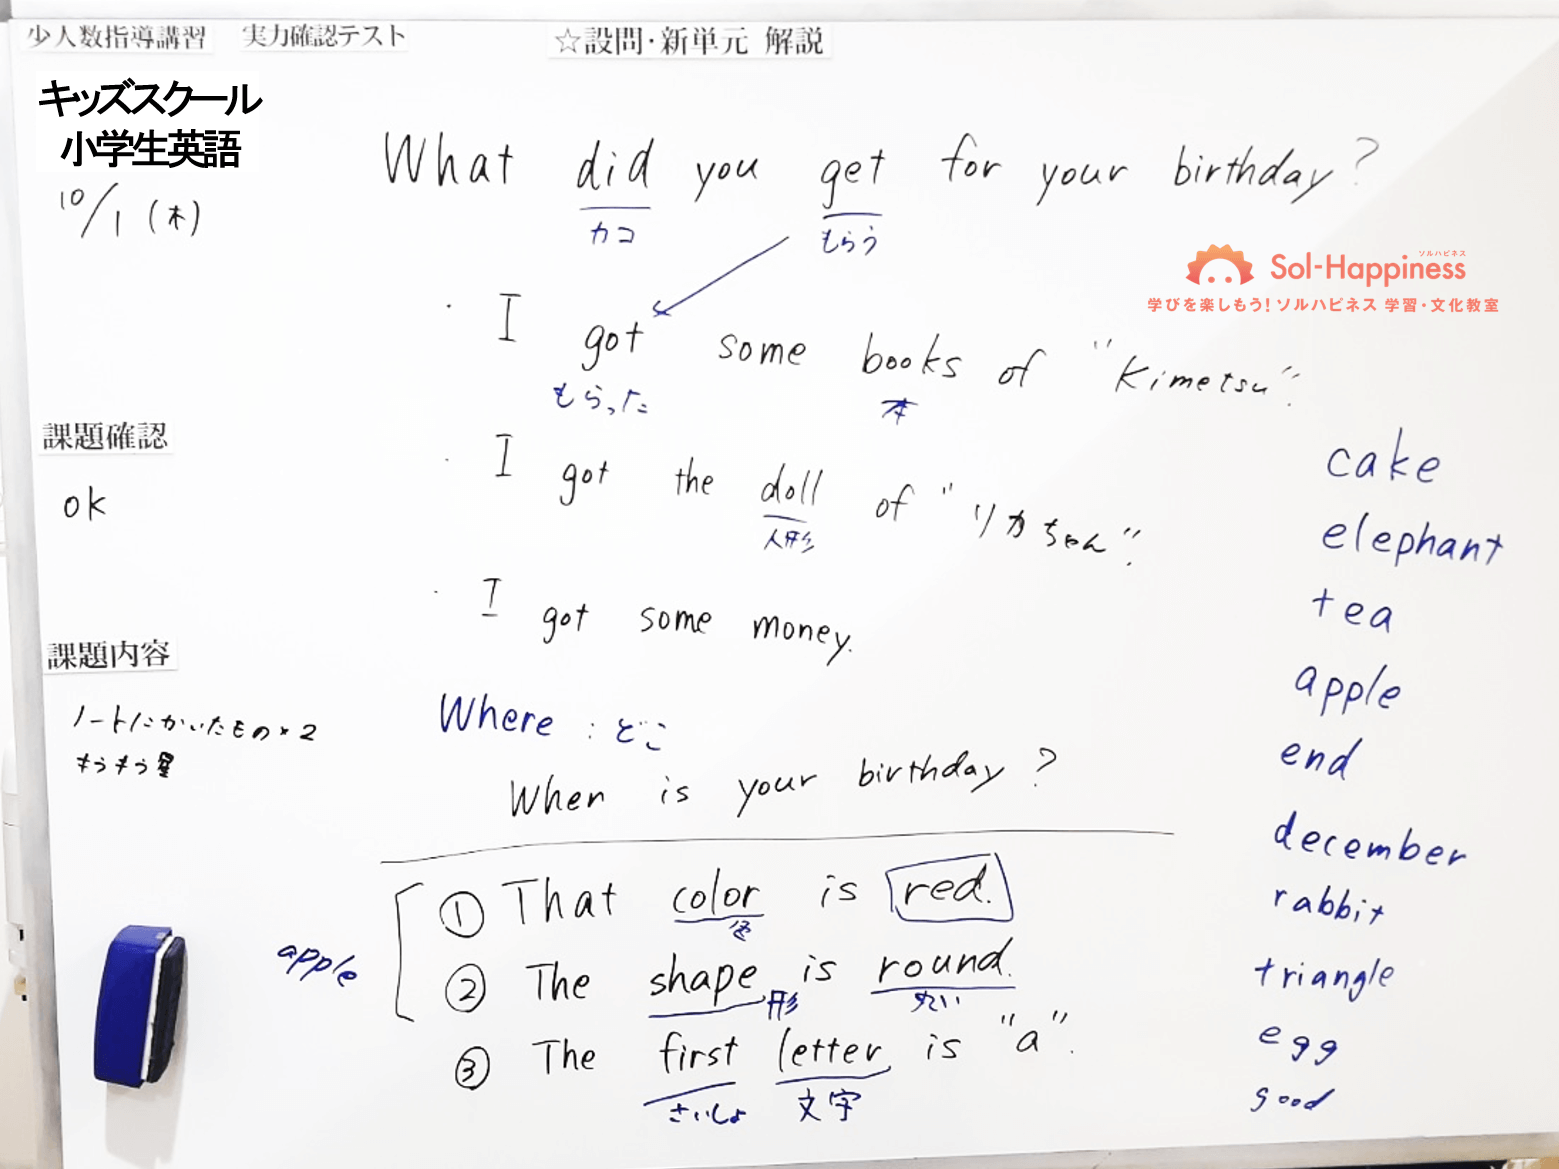 少人数指導講習 実力確認テスト ☆設問・新単元 解説
キッズスクール
小学生英語
10/1 (木)
What did you get for your birthday?
カコ もらう
ソルハピネス
Sol-Happiness
学びを楽しもう! ソルハピネス 学習・文化教室
・I got some books of "Kimetsu".
もらった 本
課題確認
ok
・I got the doll of "リカちゃん".
人形
・I got some money.
課題内容
ノートにかいたもの×2
もうもう星
Where : どこ
When is your birthday?
apple
① That color is red.
色
② The shape is round.
形 丸い
③ The first letter is "a".
さいしょ 文字
cake
elephant
tea
apple
end
december
rabbit
triangle
egg
good